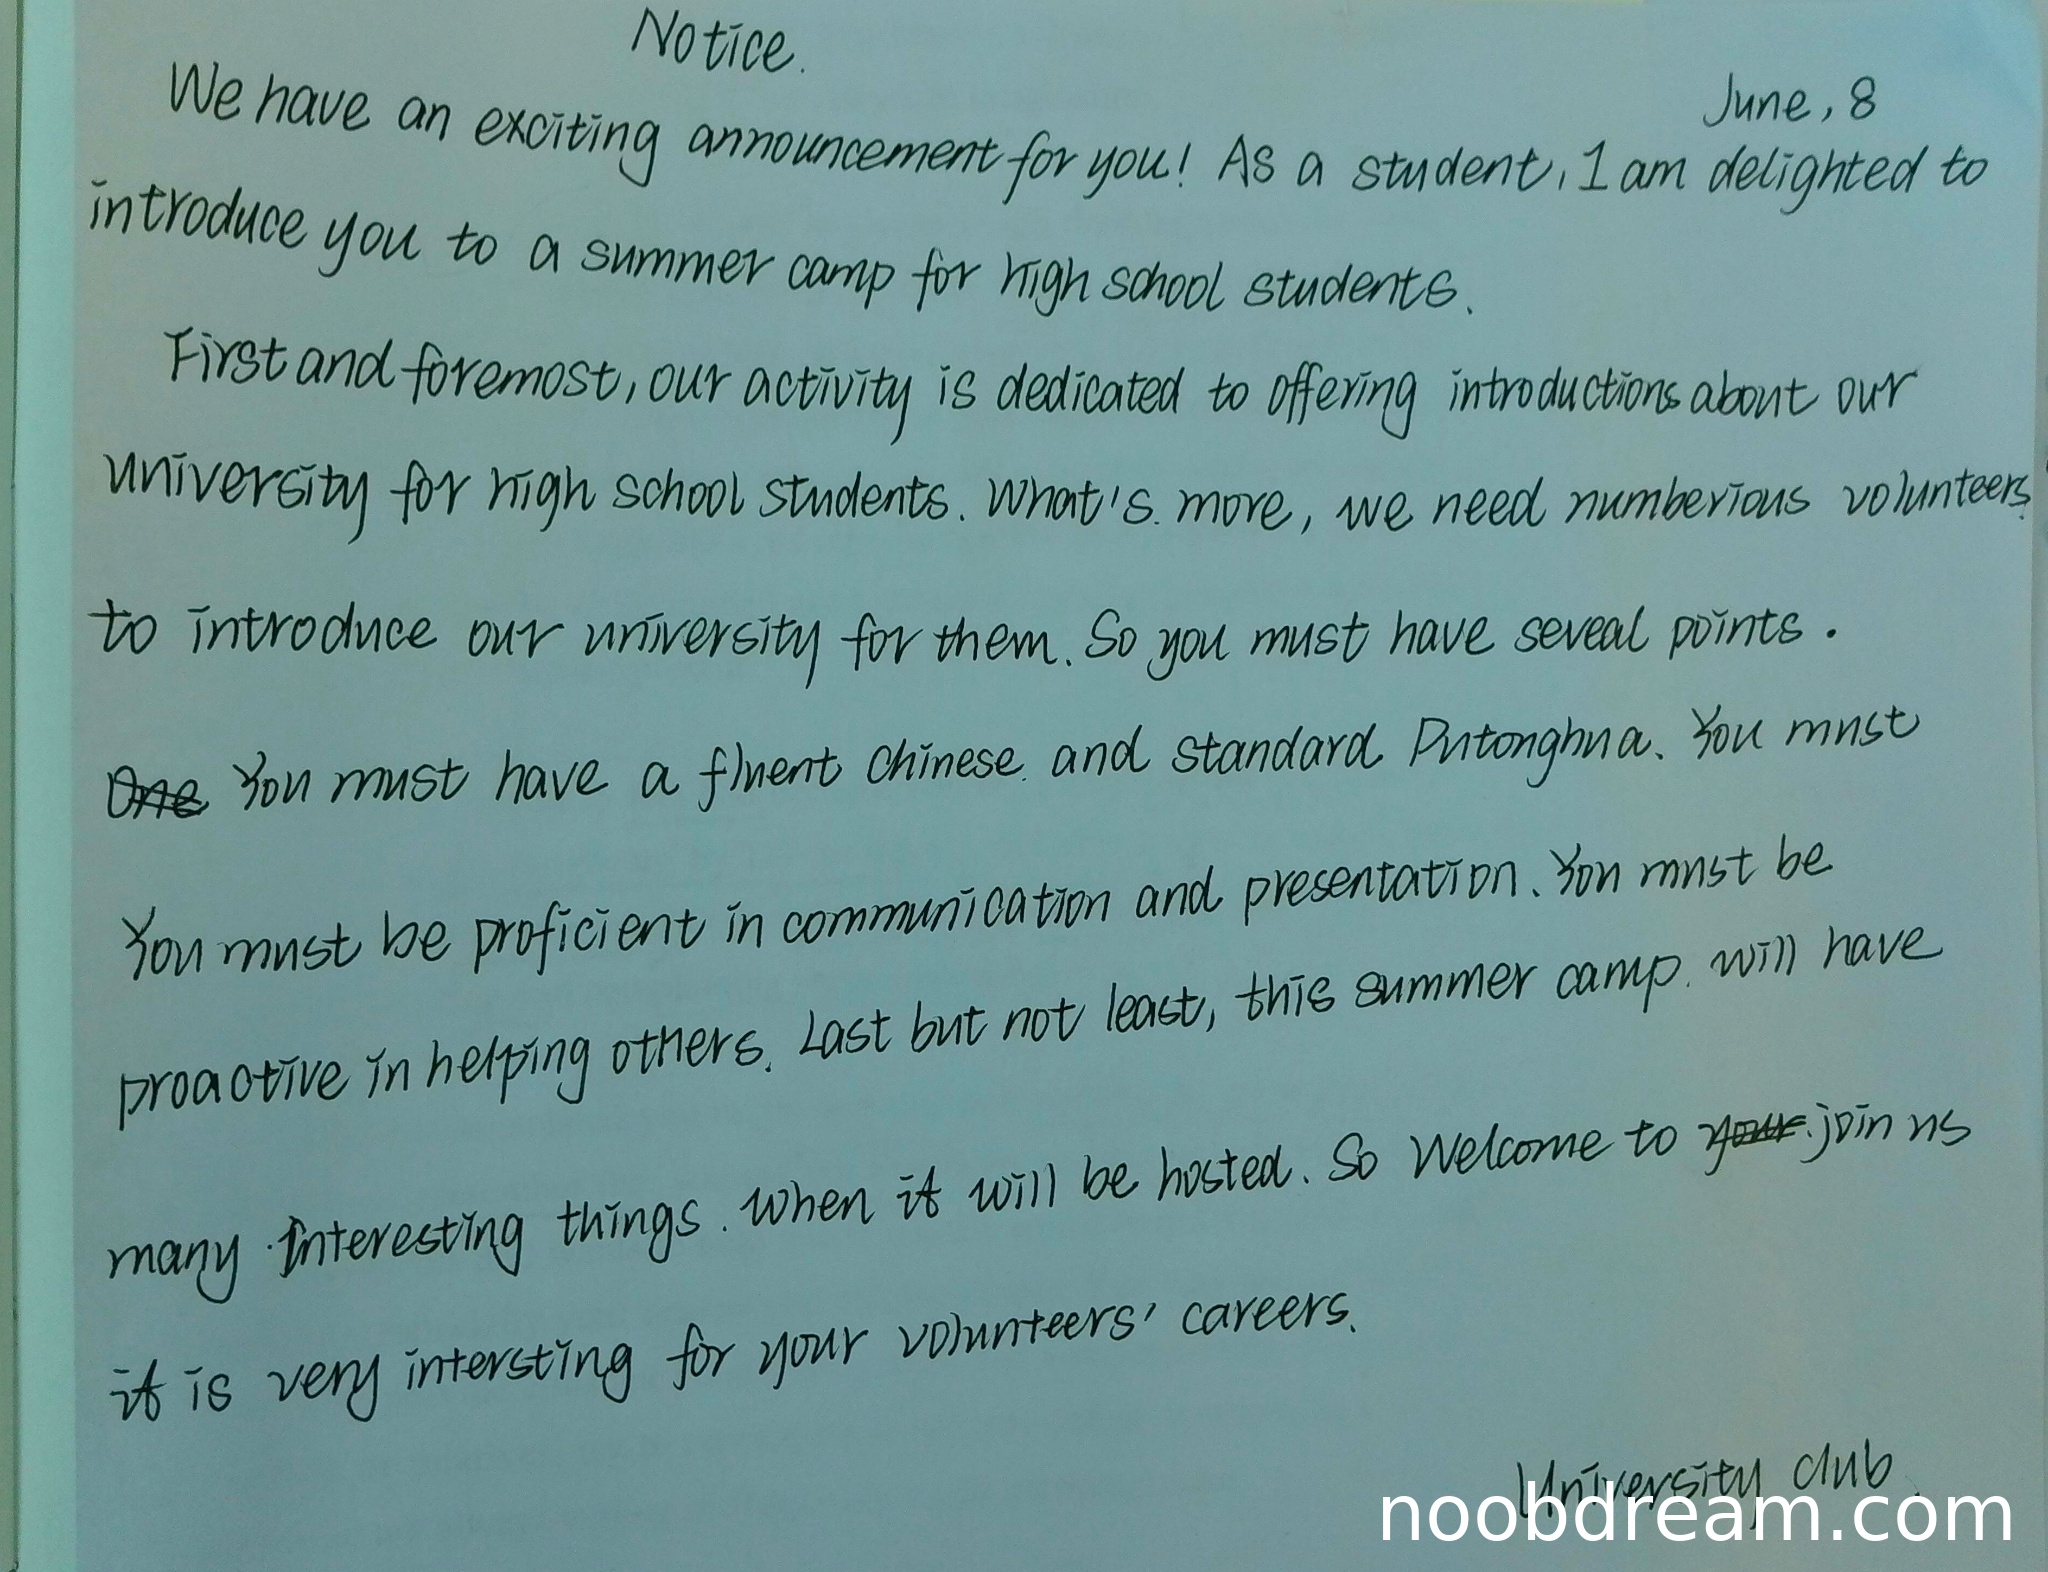 Notice.
June, 8
We have an exciting announcement for you! As a student, I am delighted to
introduce you to a summer camp for high school students.
First and foremost, our activity is dedicated to offering introductions about our
university for high school students. What's more, we need numberious volunteers
to introduce our university for them. So you must have seveal points.
One You must have a fluent Chinese and standard Putonghua. You must
You must be proficient in communication and presentation. You must be
proactive in helping others. Last but not least, this summer camp will have
many interesting things. When it will be hosted. So Welcome to your join us
it is very intersting for your volunteers' careers.
University club.
noobdream.com